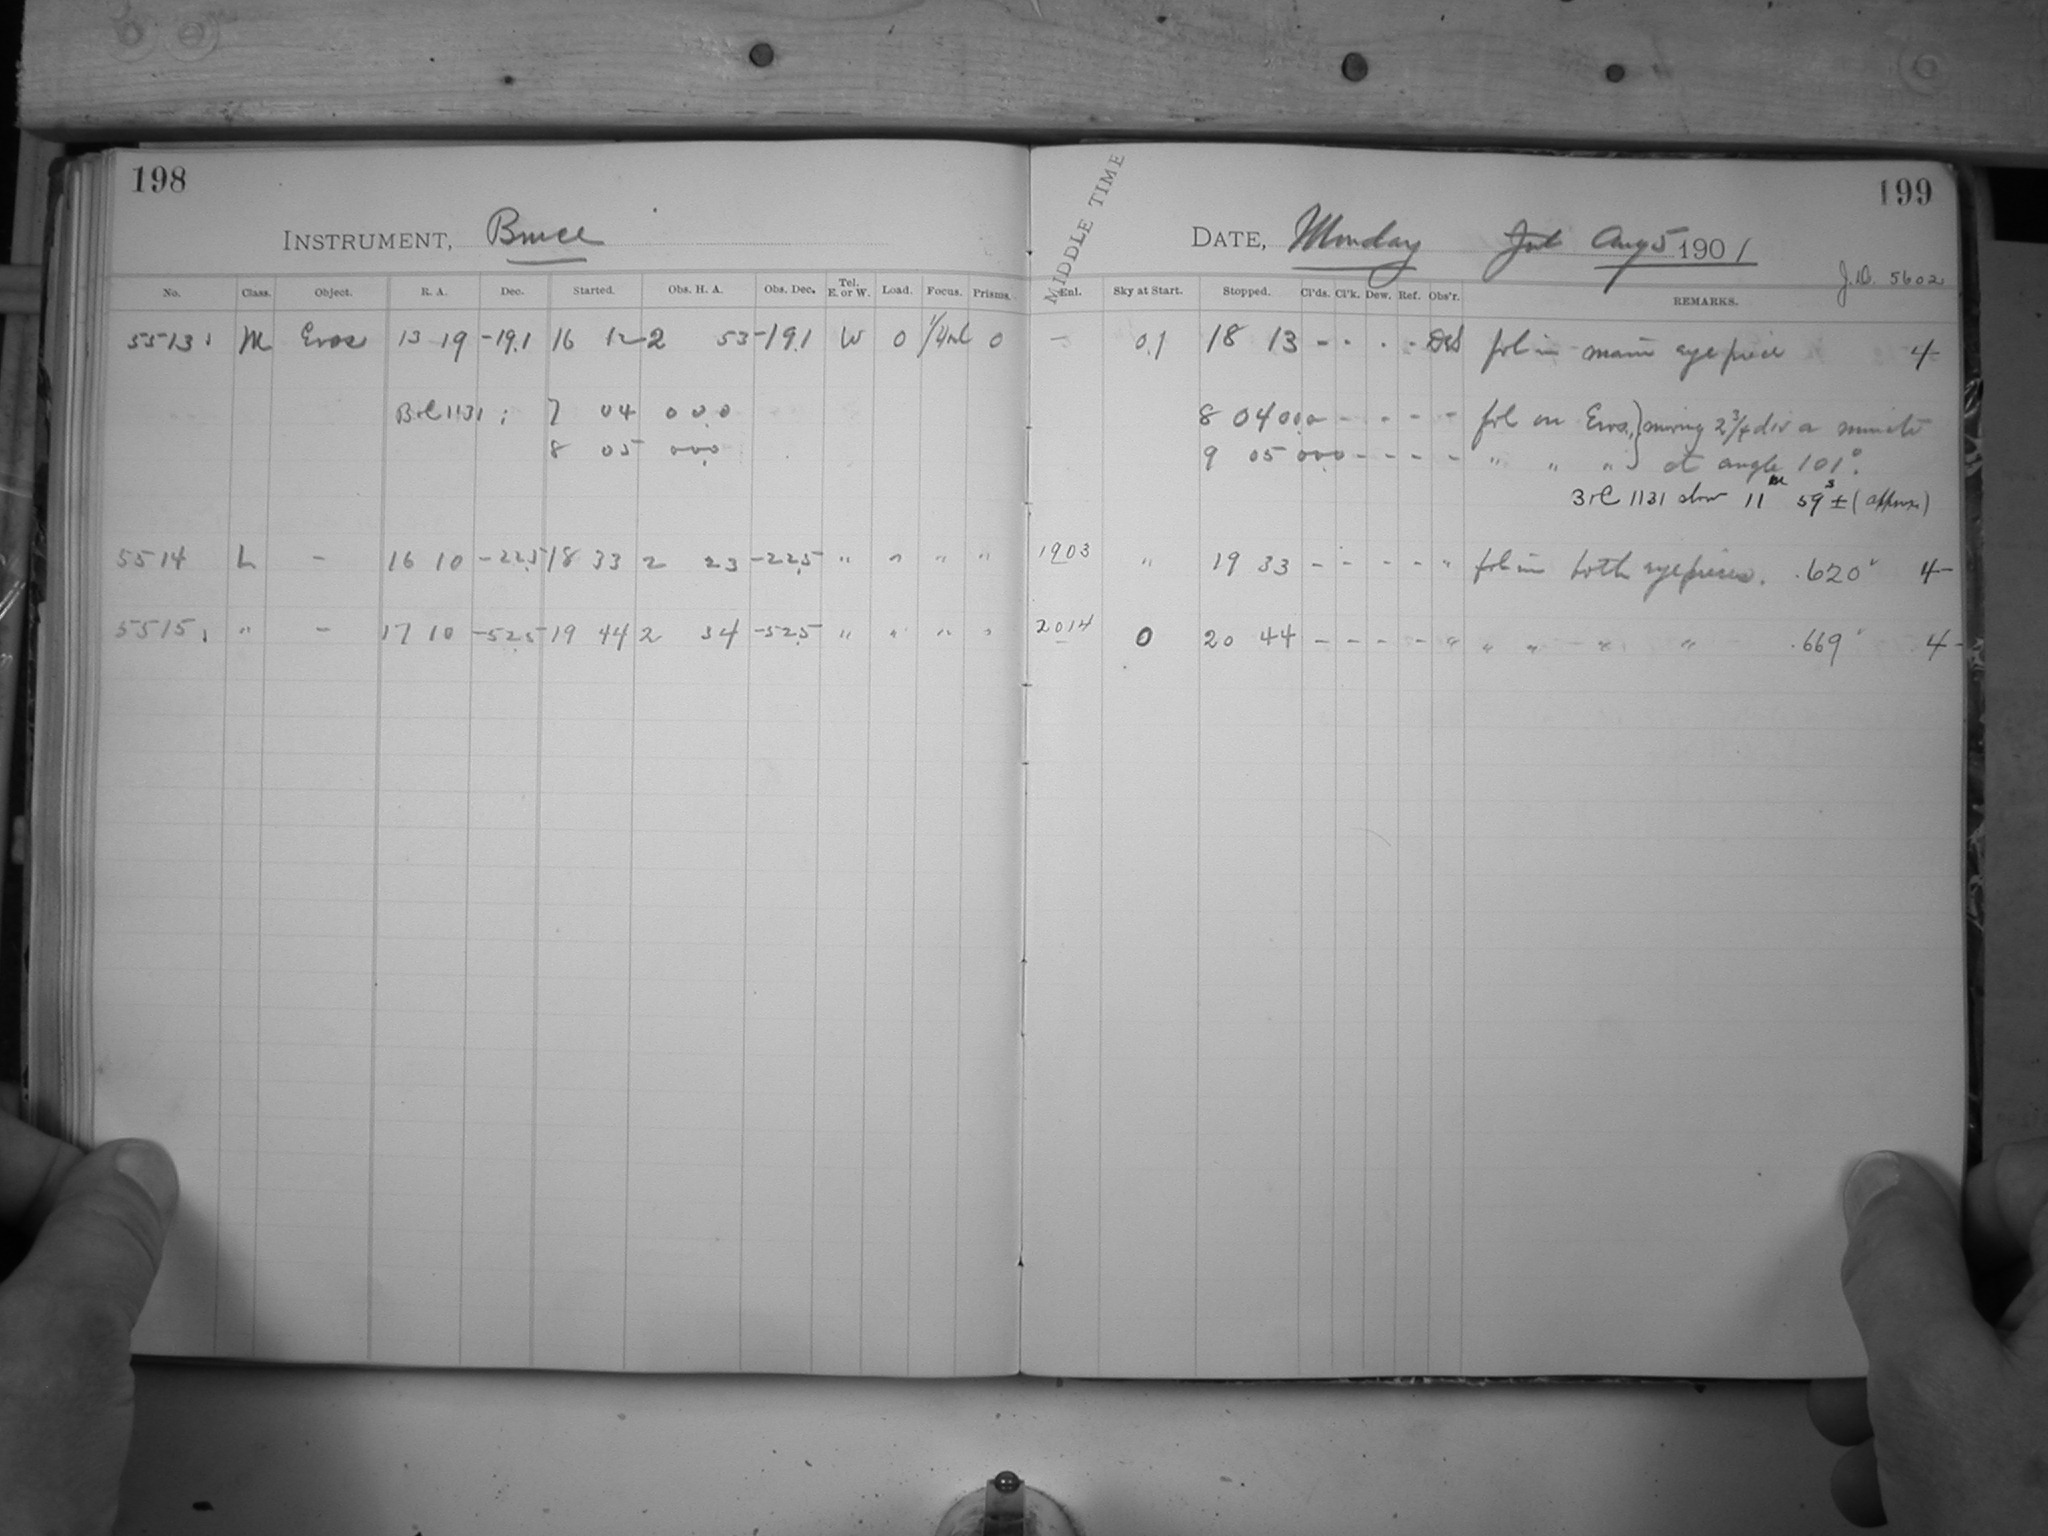 198
INSTRUMENT, Bruce
No. Class. Object. R. A. Dec. Started. Obs. H. A. Obs. Dec. Tel. E. or W. Load. Focus. Prisms.
5513 M Eros 13 19 -19.1 16 12 2 53 -19.1 W 0 0
B&C 1131 ; 7 04 00.0
8 05 00.0
5514 L - 16 10 -22.5 18 33 2 23 -22.5 " " " "
5515 " - 17 10 -52.5 19 44 2 34 -52.5 " " " "
199
MIDDLE TIME
DATE, Monday Aug 5 1901
J.D. 5602
Enl. Sky at Start. Stopped. Cl'ds. Cl'k. Dew. Ref. Obs'r. REMARKS.
- 0.1 18 13 - - - - fol in main eyepiece 4
8 04 00.0 - - - - fol on Eros, } moving 2 3/4 div a minute
9 05 00.0 - - - - " " " } at angle 101°.
1131 slow 11m 59s ± (approx)
1903 " 19 33 - - - - " fol in both eyepieces. .620" 4-
2014 0 20 44 - - - - " " " " " .669" 4-